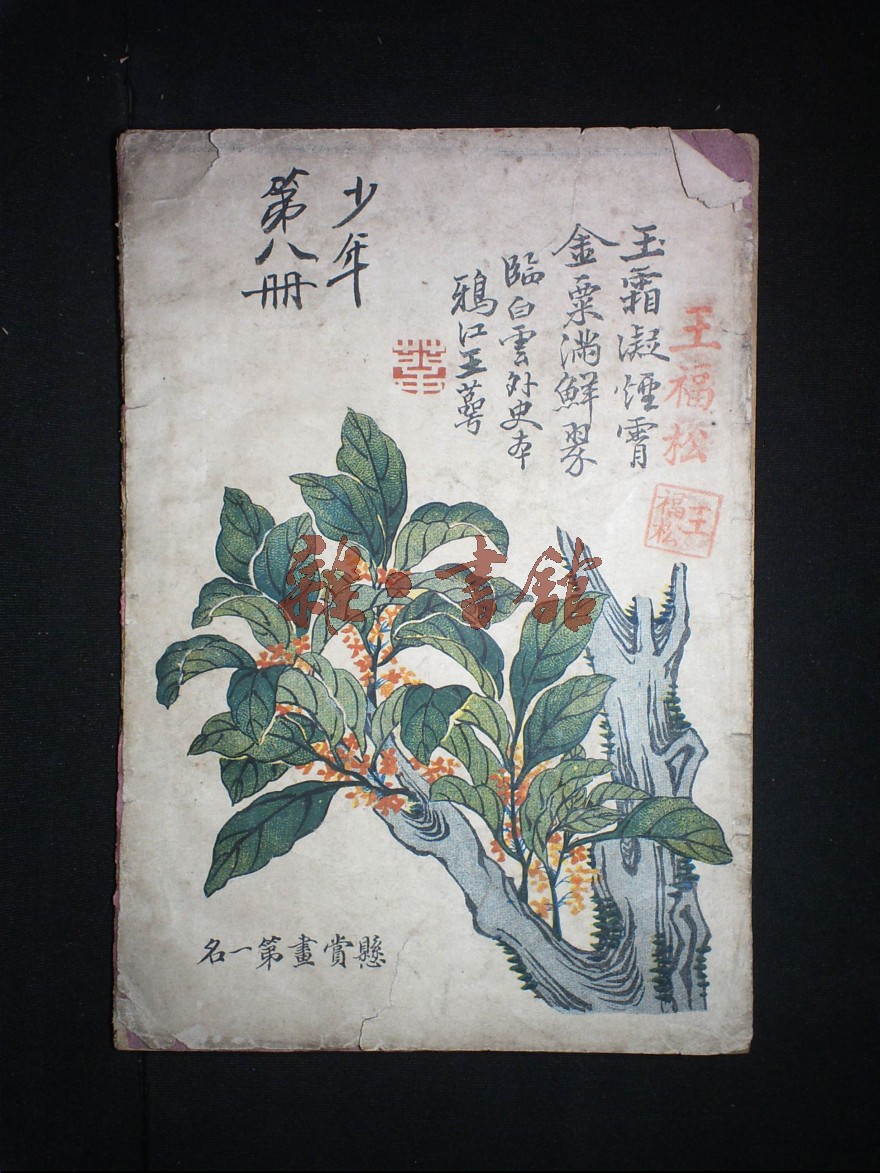 少年
第八册
玉霜凝煙霄
金粟滿鮮翠
臨白雲外史本
鴉江王萼
王福松
王福松
雜·書館
懸賞畫第一名